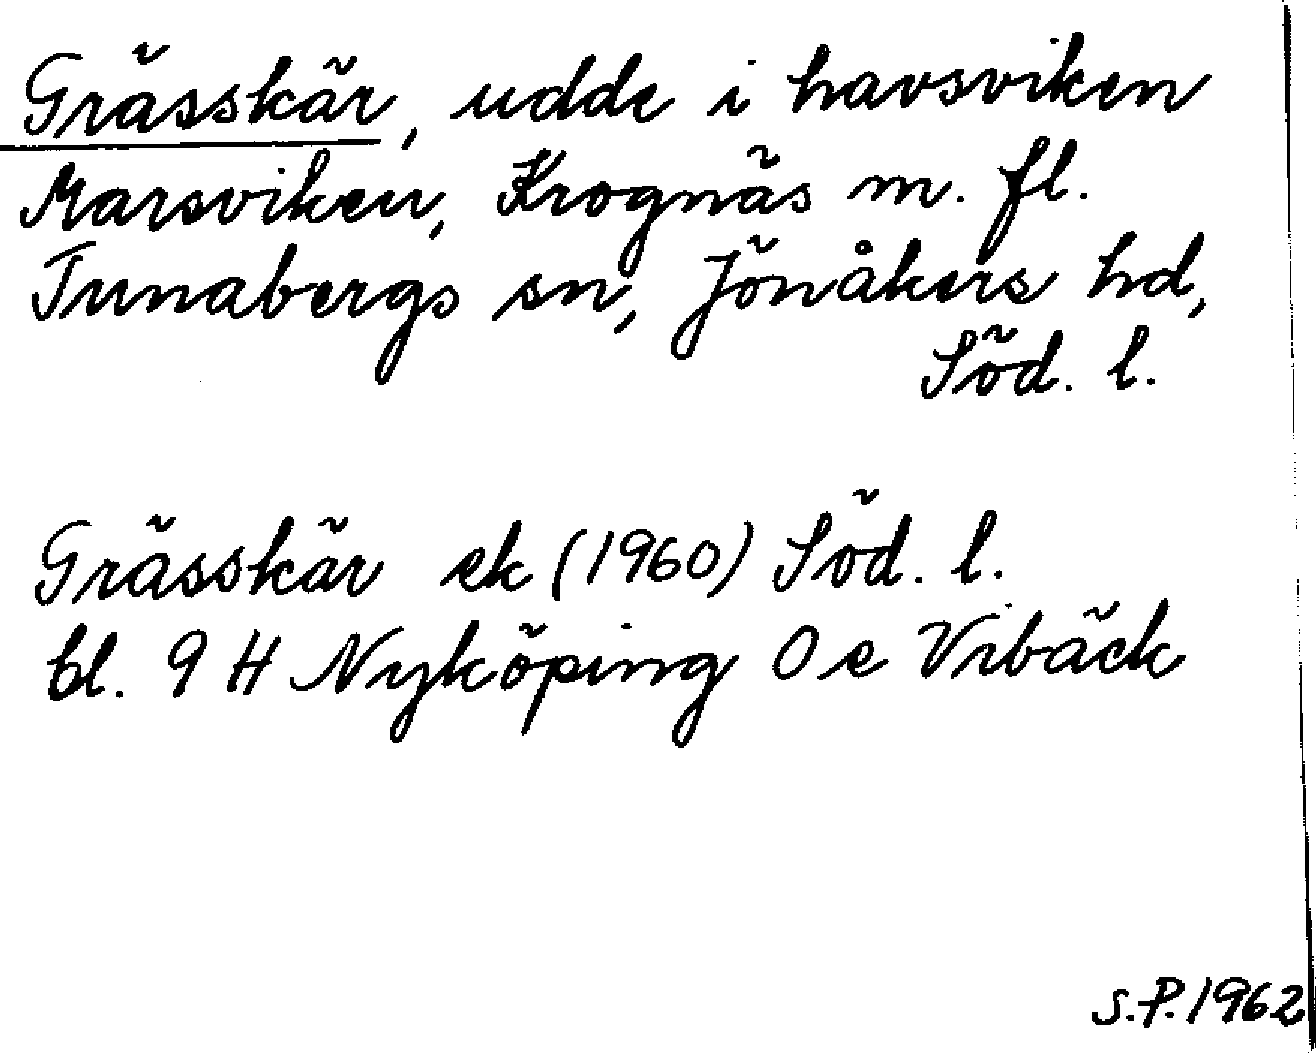 Grässkär, udde i havsviken
Marsviken, Krognäs m. fl.
Tunabergs sn, Jönåkers hd,
Söd. l.
Grässkär ek (1960) Söd. l.
bl. 9 H Nyköping 0 e Vibäck
S.P. 1962